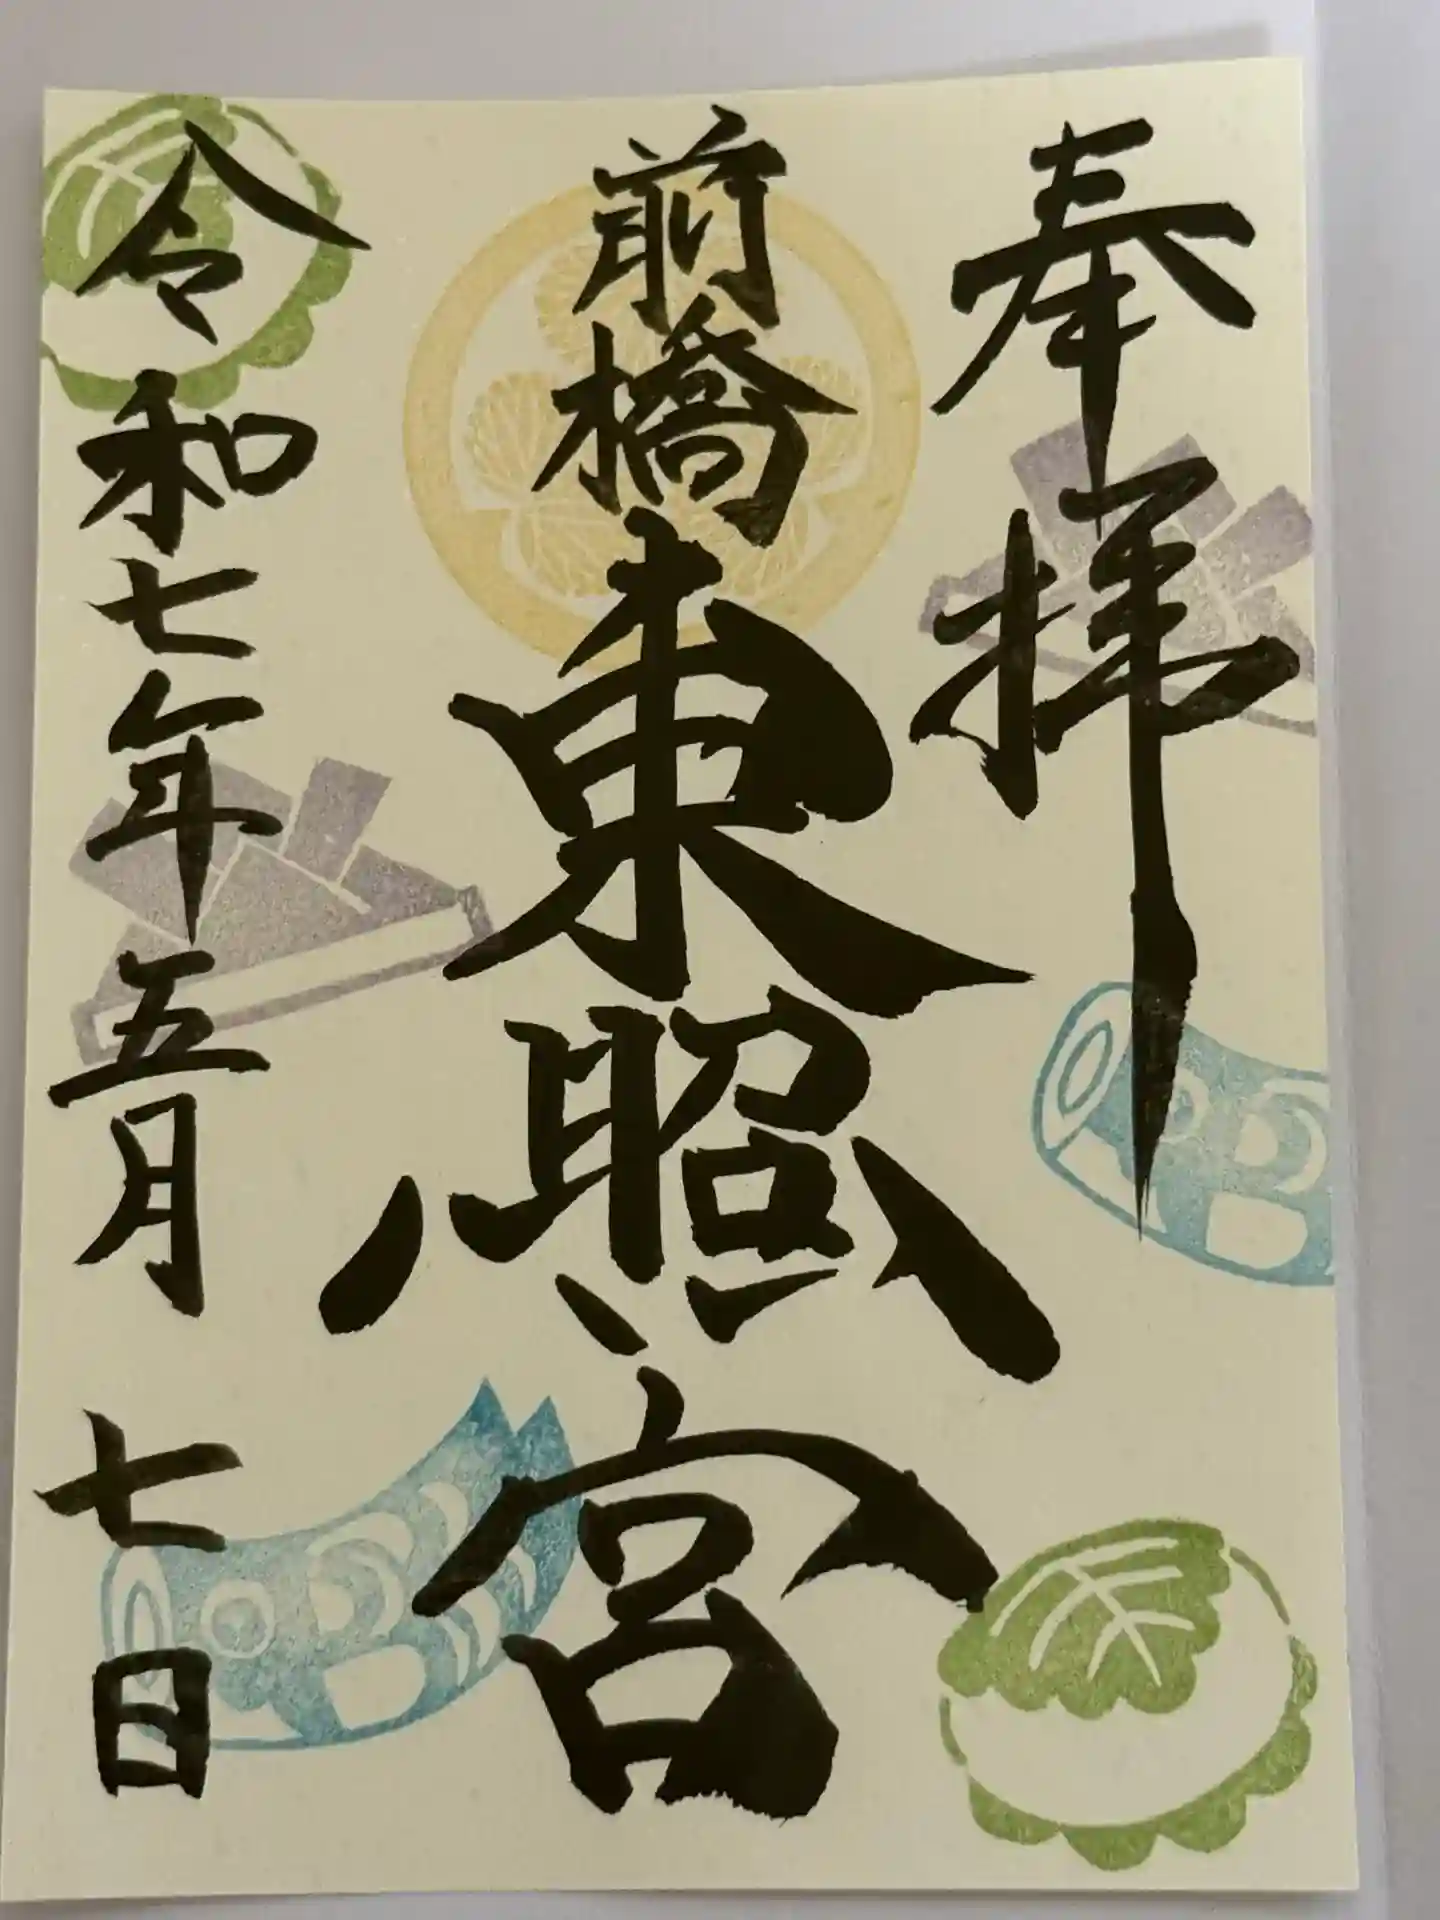 奉拝
前橋東照宮
令和七年五月七日